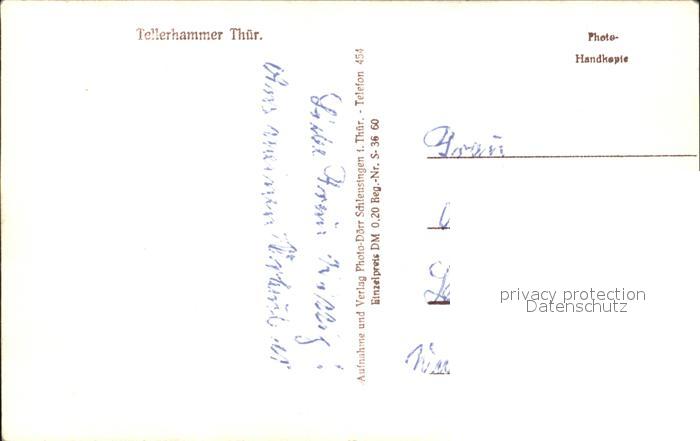 Tellerhammer Thür.
Photo-
Handkopie
Aufnahme und Verlag Photo-Dörr Schleusingen i. Thür. - Telefon 454
Einzelpreis DM 0,20 Reg.-Nr. S- 36 60
Liebe Frau
Aus meinem Urlaub
Frau
privacy protection
Datenschutz